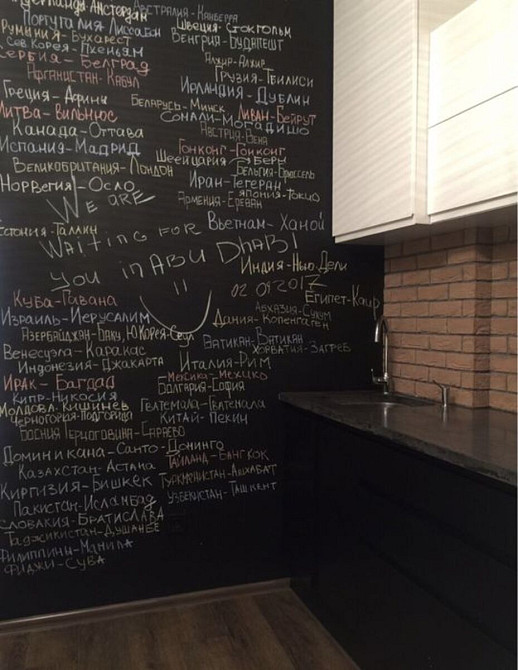 Нидерланды Амстердам
Австралия-Канберра
Португалия Лиссабон
Швеция-Стокгольм
Румыния-Бухарест
Венгрия-Будапешт
Сев.Корея-Пхеньян
Сербия-Белград
Алжир-Алжир
Афганистан-Кабул
Грузия-Тбилиси
Ирландия-Дублин
Греция-Афины
Беларусь-Минск
Литва-Вильнюс
Сомали-Могадишо
Ливан-Бейрут
Канада-Оттава
Австрия-Вена
Испания-Мадрид
Гонконг-Гонконг
Швейцария-Берн
Великобритания-Лондон
Бельгия-Брюссель
Норвегия-Осло
Иран-Тегеран
Япония-Токио
Армения-Ереван
We are
Вьетнам-Ханой
Эстония-Таллин
Waiting for
you in Abu Dhabi
Индия-Нью Дели
02 01 2017
Египет-Каир
Куба-Гавана
Абхазия-Сухум
Израиль-Иерусалим
Дания-Копенгаген
Азербайджан-Баку, Ю.Корея-Сеул
Ватикан-Ватикан
Венесуэла-Каракас
Хорватия-Загреб
Индонезия-Джакарта
Италия-Рим
Ирак-Багдад
Мексика-Мехико
Болгария-София
Кипр-Никосия
Молдова Кишинев
Гватемала-Гватемала
Черногория-Подгорица
Китай-Пекин
Босния Герцоговина-Сараево
Доминикана-Санто-Доминго
Таиланд-Бангкок
Казахстан-Астана
Туркменистан-Ашхабат
Киргизия-Бишкек
Узбекистан-Ташкент
Пакистан-Исламбад
Словакия-Братислава
Таджикистан-Душанбе
Филиппины-Манила
Фиджи-Сува